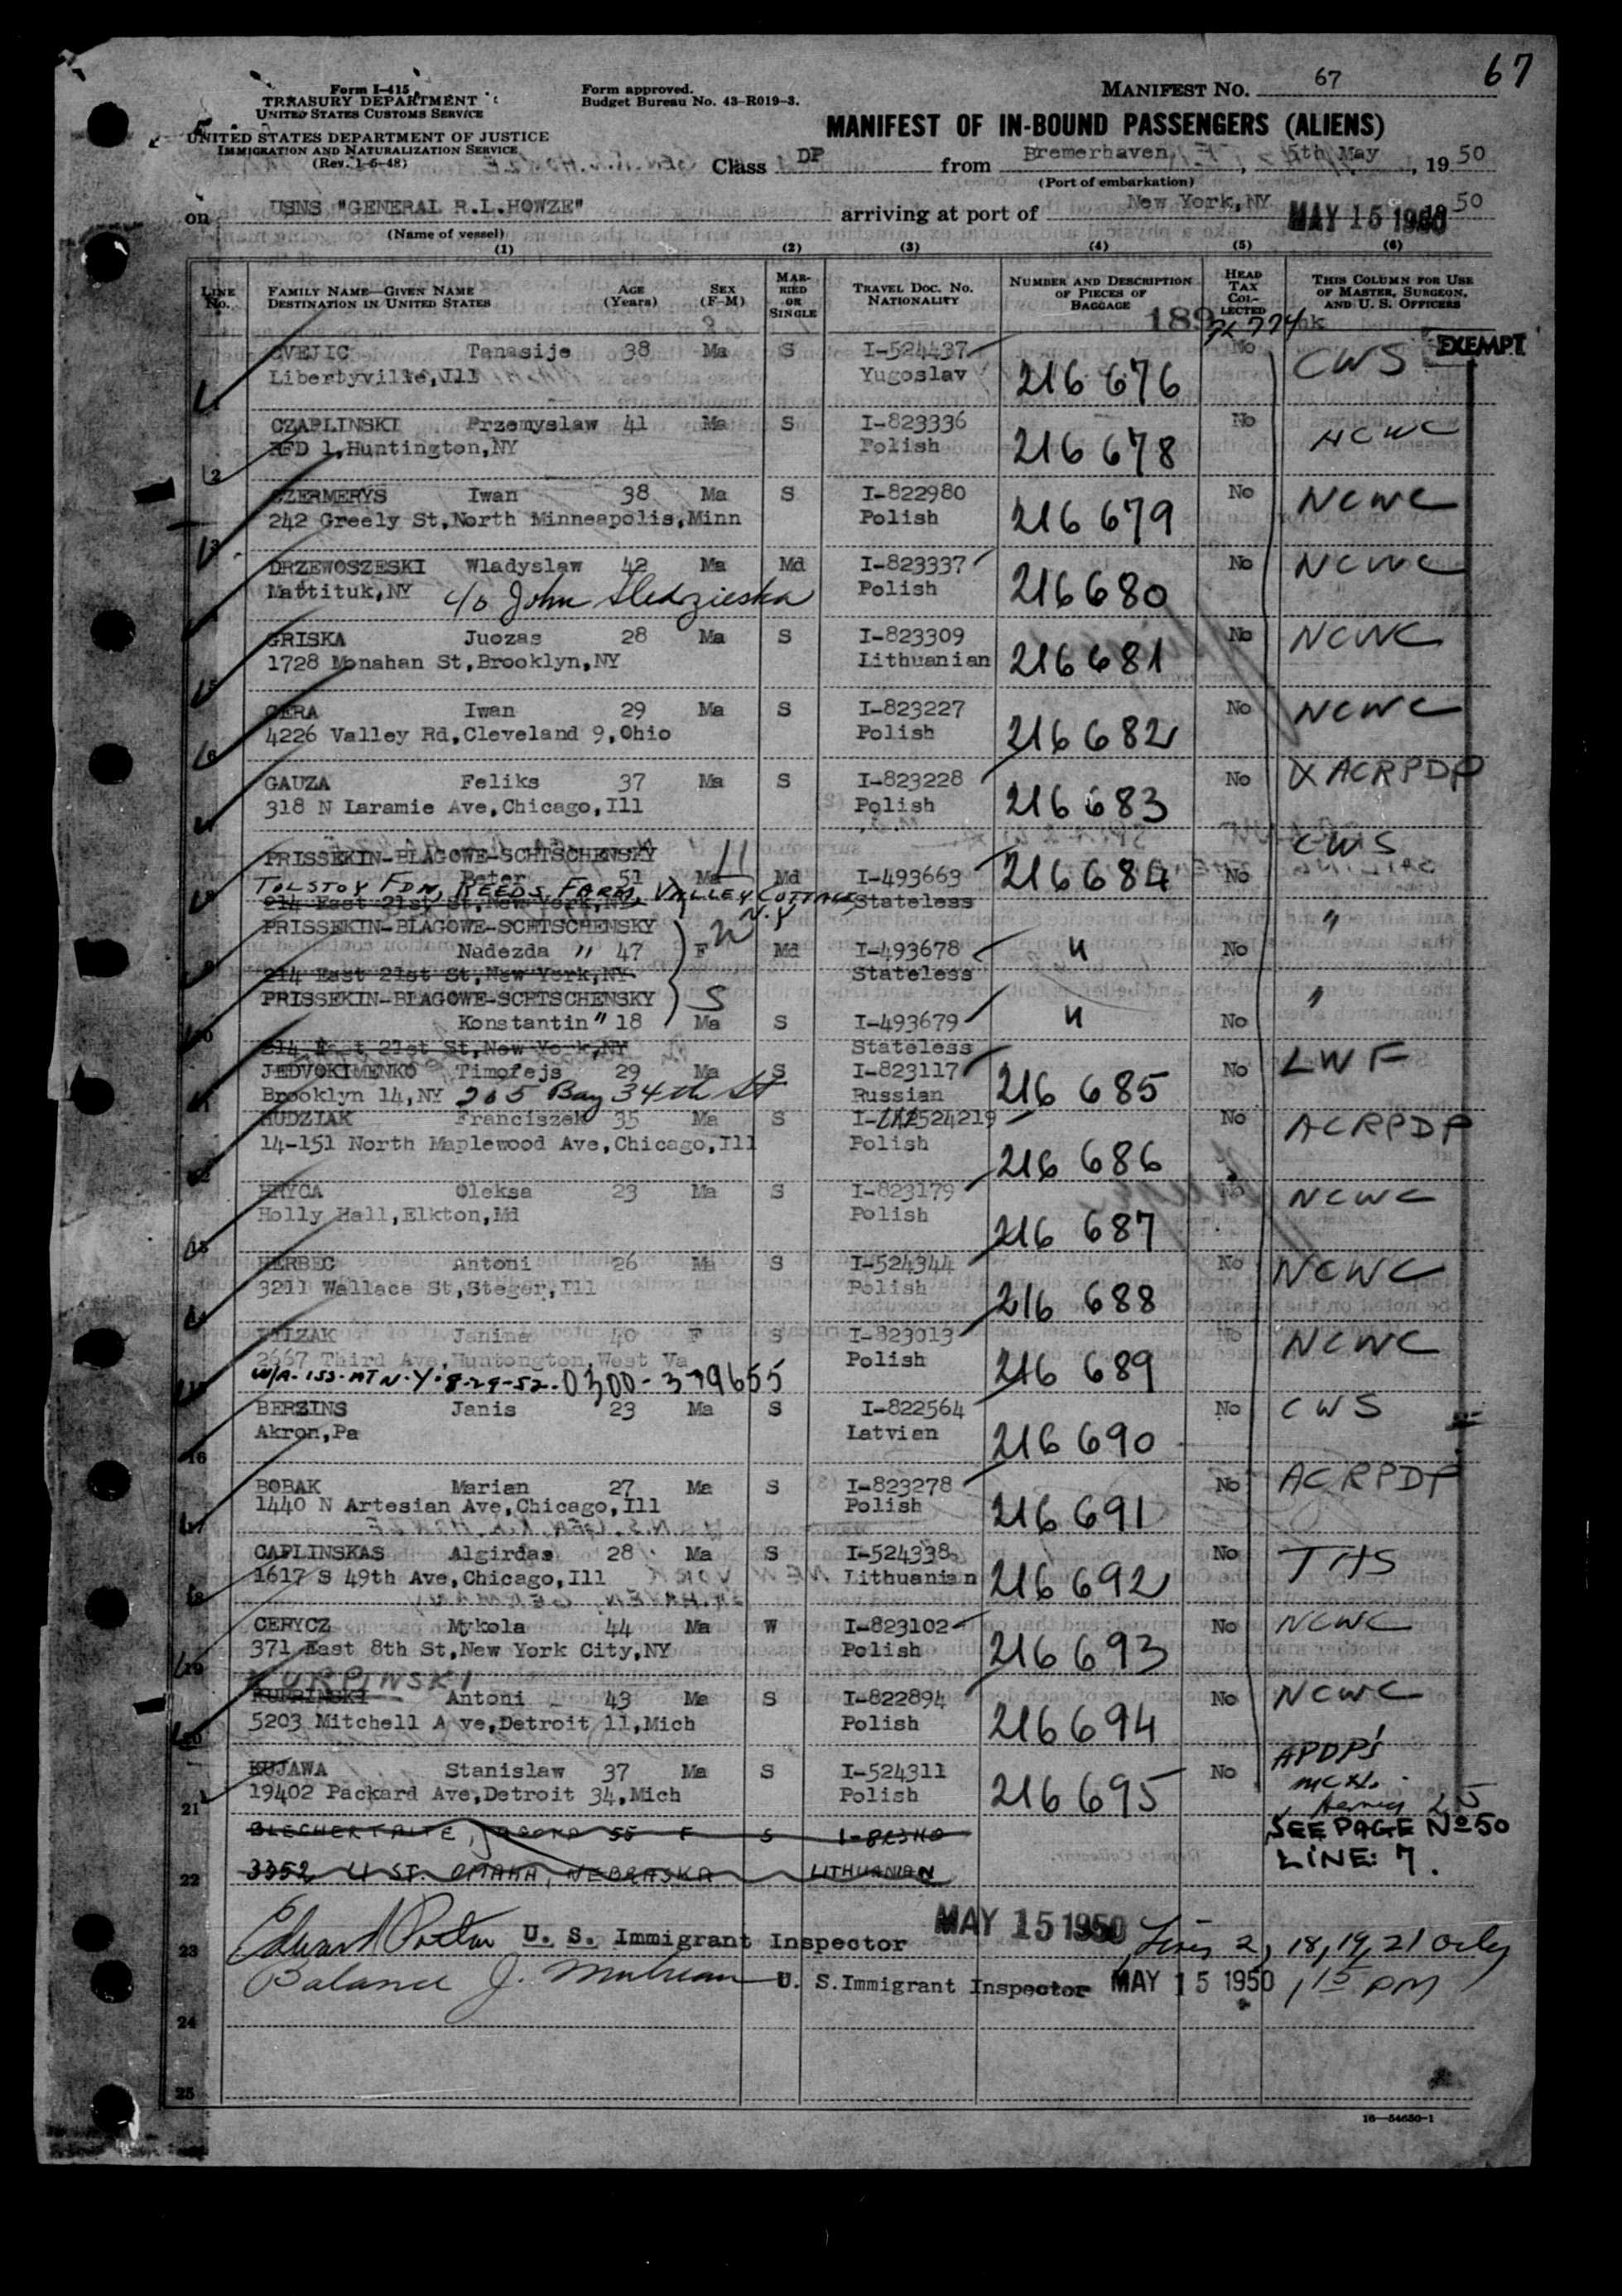 67
Form I-415
TREASURY DEPARTMENT
UNITED STATES CUSTOMS SERVICE
UNITED STATES DEPARTMENT OF JUSTICE
IMMIGRATION AND NATURALIZATION SERVICE
(Rev. 1-6-48)
Form approved.
Budget Bureau No. 43-R019-3.
MANIFEST NO. 67
MANIFEST OF IN-BOUND PASSENGERS (ALIENS)
Class DP from Bremerhaven, 5th May, 1950
(Port of embarkation)
on USNS "GENERAL R.L.HOWZE" arriving at port of New York,NY MAY 15 1950 50
(Name of vessel)
(1) (2) (3) (4) (5) (6)
LINE No. FAMILY NAME—GIVEN NAME DESTINATION IN UNITED STATES AGE (Years) SEX (F-M) MARRIED OR SINGLE TRAVEL DOC. NO. NATIONALITY NUMBER AND DESCRIPTION OF PIECES OF BAGGAGE HEAD TAX COLLECTED THIS COLUMN FOR USE OF MASTER, SURGEON, AND U. S. OFFICERS
189
1 CVEJIC Tanasije 38 Ma S I-524437 216 676 No CWS EXEMPT
Libertyville,Ill Yugoslav
2 CZAPLINSKI Przemyslaw 41 Ma S I-823336 216 678 No NCWC
RFD 1,Huntington,NY Polish
3 CZERMERYS Iwan 38 Ma S I-822980 216 679 No NCWC
242 Greely St,North Minneapolis,Minn Polish
4 DRZEWOSZESKI Wladyslaw 42 Ma Md I-823337 216 680 No NCWC
Mattituk,NY c/o John Sledzieska Polish
5 GRISKA Juozas 28 Ma S I-823309 216 681 No NCWC
1728 Monahan St,Brooklyn,NY Lithuanian
6 GERA Iwan 29 Ma S I-823227 216 682 No NCWC
4226 Valley Rd,Cleveland 9,Ohio Polish
7 GAUZA Feliks 37 Ma S I-823228 216 683 No X ACRPDP
318 N Laramie Ave,Chicago,Ill Polish
PRISSEKIN-BLAGOWE-SCHTSCHENSKY H CWS
8 Peter 51 Ma Md I-493663 216 684 No
TOLSTOY FDN, REEDS FARM, VALLEY COTTAGE, N.Y
214 East 21st St,New York,NY Stateless
PRISSEKIN-BLAGOWE-SCHTSCHENSKY W "
9 Nadezda " 47 F Md I-493678 " No
214 East 21st St,New York,NY Stateless
PRISSEKIN-BLAGOWE-SCHTSCHENSKY S "
10 Konstantin " 18 Ma S I-493679 " No
214 East 21st St,New York,NY Stateless
11 JEDVOKIMENKO Timofejs 29 Ma S I-823117 216 685 No LWF
Brooklyn 14,NY 205 Bay 34th St Russian
12 HUDZIAK Franciszek 35 Ma S I-524219 216 686 No ACRPDP
14-151 North Maplewood Ave,Chicago,Ill Polish
13 HRYCA Oleksa 23 Ma S I-823179 216 687 No NCWC
Holly Hall,Elkton,Md Polish
14 HERBEC Antoni 26 Ma S I-524344 216 688 No NCWC
3211 Wallace St,Steger,Ill Polish
15 Janina 40 F S I-823013 216 689 No NCWC
2667 Third Ave,Huntongton,West Va Polish
8-29-52. 0300-379655
16 BERZINS Janis 23 Ma S I-822564 216 690 No CWS
Akron,Pa Latvien
17 BOBAK Marian 27 Ma S I-823278 216 691 No ACRPDP
1440 N Artesian Ave,Chicago,Ill Polish
18 CAPLINSKAS Algirdas 28 Ma S I-524338 216 692 No THS
1617 S 49th Ave,Chicago,Ill Lithuanian
19 CERYCZ Mykola 44 Ma W I-823102 216 693 No NCWC
371 East 8th St,New York City,NY Polish
KURPINSKI
20 KUPRINSKI Antoni 43 Ma S I-822894 216 694 No NCWC
5203 Mitchell A ve,Detroit 11,Mich Polish
21 KUJAWA Stanislaw 37 Ma S I-524311 216 695 No APDP's
19402 Packard Ave,Detroit 34,Mich Polish
55 F S
SEE PAGE No 50
22 3352 U ST. OMAHA, NEBRASKA LITHUANIAN LINE: 7.
23 U. S. Immigrant Inspector MAY 15 1950 Lines 2, 18, 19, 21 only
Balance J. U. S.Immigrant Inspector MAY 15 1950 1 15 PM
24
25
16—54650-1